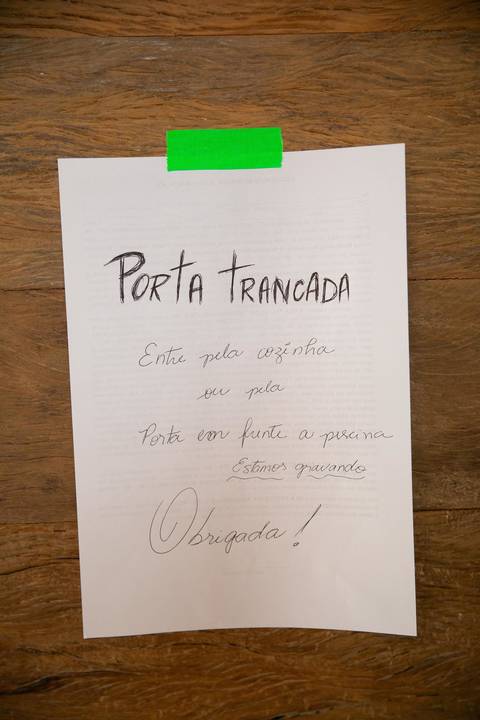 PORTA TRANCADA
Entre pela cozinha
ou pela
Porta em frente a piscina
Estamos gravando
Obrigada!